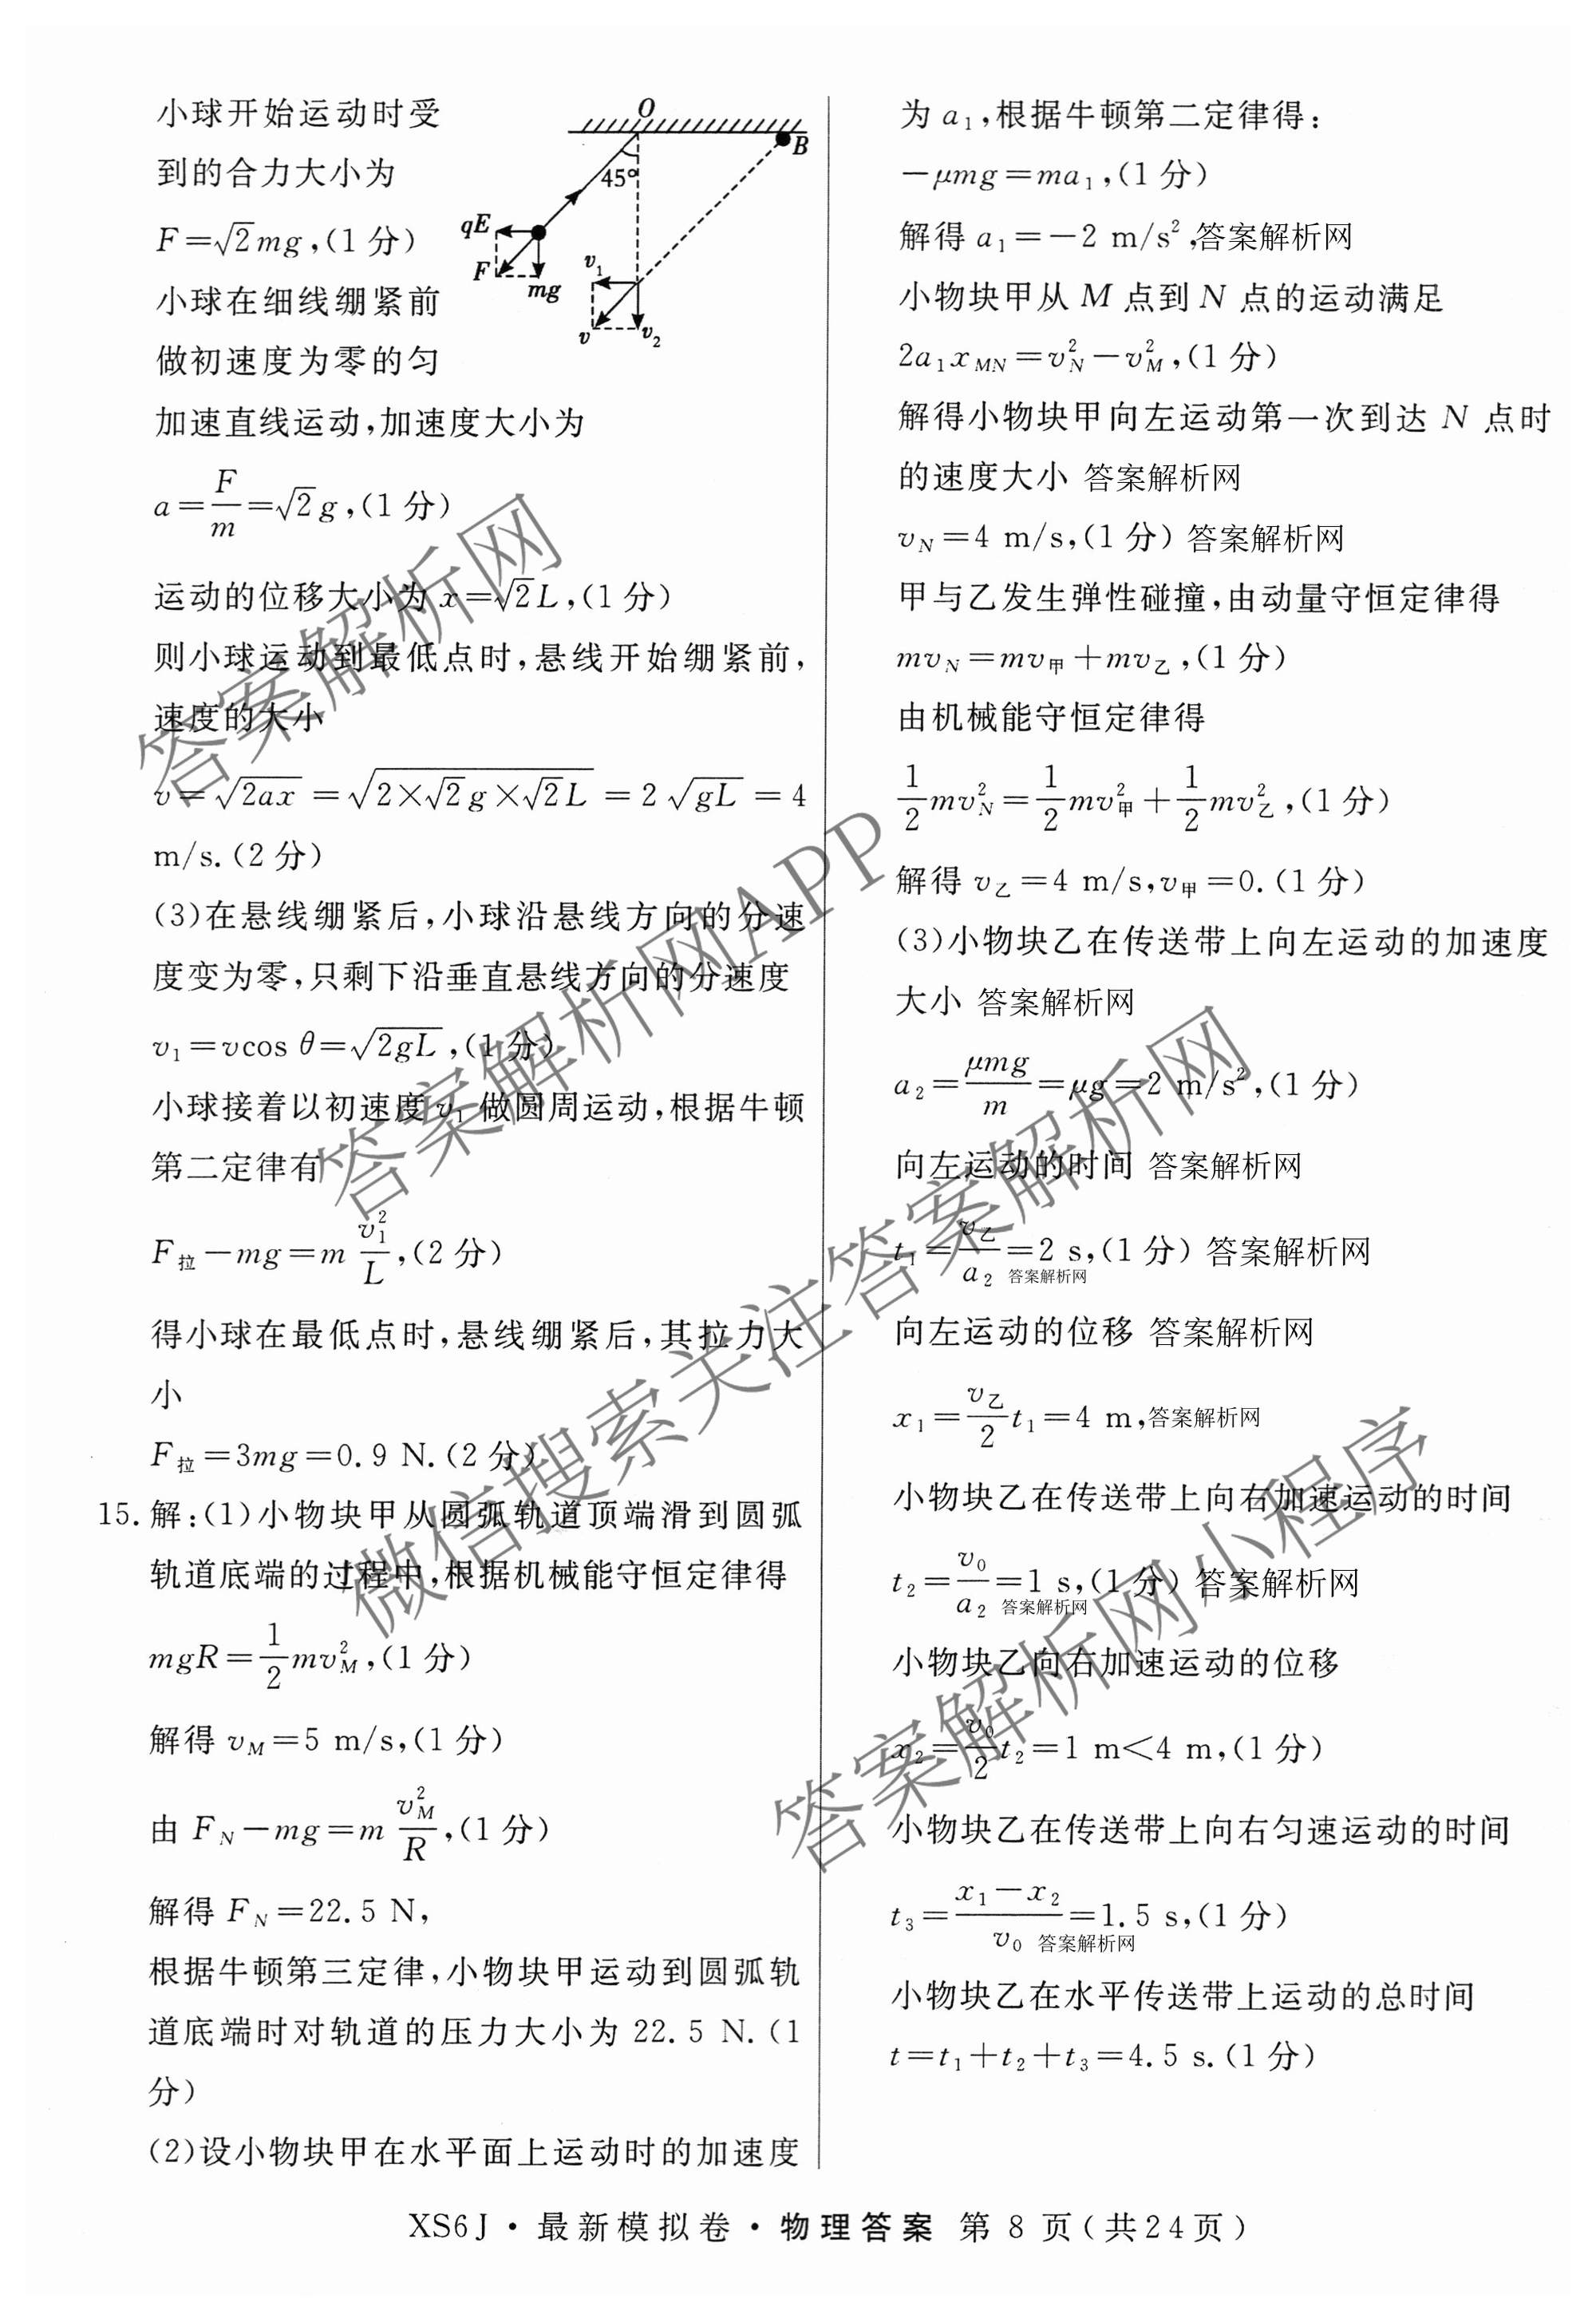 小球开始运动时受
到的合力大小为
F=√2mg,(1分)
小球在细线绷紧前
做初速度为零的匀
O
B
45°
qE
F
mg
v₁
v
v₂
加速直线运动,加速度大小为
a=F/m=√2g,(1分)
运动的位移大小为x=√2L,(1分)
则小球运动到最低点时,悬线开始绷紧前,
速度的大小
v=√(2ax)=√(2×√2g×√2L)=2√(gL)=4
m/s.(2分)
(3)在悬线绷紧后,小球沿悬线方向的分速
度变为零,只剩下沿垂直悬线方向的分速度
v₁=vcos θ=√(2gL),(1分)
小球接着以初速度v₁做圆周运动,根据牛顿
第二定律有
F拉-mg=m v₁²/L,(2分)
得小球在最低点时,悬线绷紧后,其拉力大
小
F拉=3mg=0.9 N.(2分)
15.解:(1)小物块甲从圆弧轨道顶端滑到圆弧
轨道底端的过程中,根据机械能守恒定律得
mgR=1/2 mv_M²,(1分)
解得v_M=5 m/s,(1分)
由F_N-mg=m v_M²/R,(1分)
解得F_N=22.5 N,
根据牛顿第三定律,小物块甲运动到圆弧轨
道底端时对轨道的压力大小为22.5 N.(1
分)
(2)设小物块甲在水平面上运动时的加速度
为a₁,根据牛顿第二定律得:
-μmg=ma₁,(1分)
解得a₁=-2 m/s²,答案解析网
小物块甲从M点到N点的运动满足
2a₁x_MN=v_N²-v_M²,(1分)
解得小物块甲向左运动第一次到达N点时
的速度大小 答案解析网
v_N=4 m/s,(1分) 答案解析网
甲与乙发生弹性碰撞,由动量守恒定律得
mv_N=mv甲+mv乙,(1分)
由机械能守恒定律得
1/2 mv_N²=1/2 mv甲²+1/2 mv乙²,(1分)
解得v乙=4 m/s,v甲=0.(1分)
(3)小物块乙在传送带上向左运动的加速度
大小 答案解析网
a₂=μmg/m=μg=2 m/s²,(1分)
向左运动的时间 答案解析网
t₁=v乙/a₂=2 s,(1分) 答案解析网
答案解析网
向左运动的位移 答案解析网
x₁=v乙/2 t₁=4 m,答案解析网
小物块乙在传送带上向右加速运动的时间
t₂=v₀/a₂=1 s,(1分) 答案解析网
答案解析网
小物块乙向右加速运动的位移
x₂=v₀/2 t₂=1 m<4 m,(1分)
小物块乙在传送带上向右匀速运动的时间
t₃=(x₁-x₂)/v₀=1.5 s,(1分)
答案解析网
小物块乙在水平传送带上运动的总时间
t=t₁+t₂+t₃=4.5 s.(1分)
答案解析网
答案解析网APP
微信搜索关注答案解析网
答案解析网小程序
XS6J·最新模拟卷·物理答案 第8页(共24页)